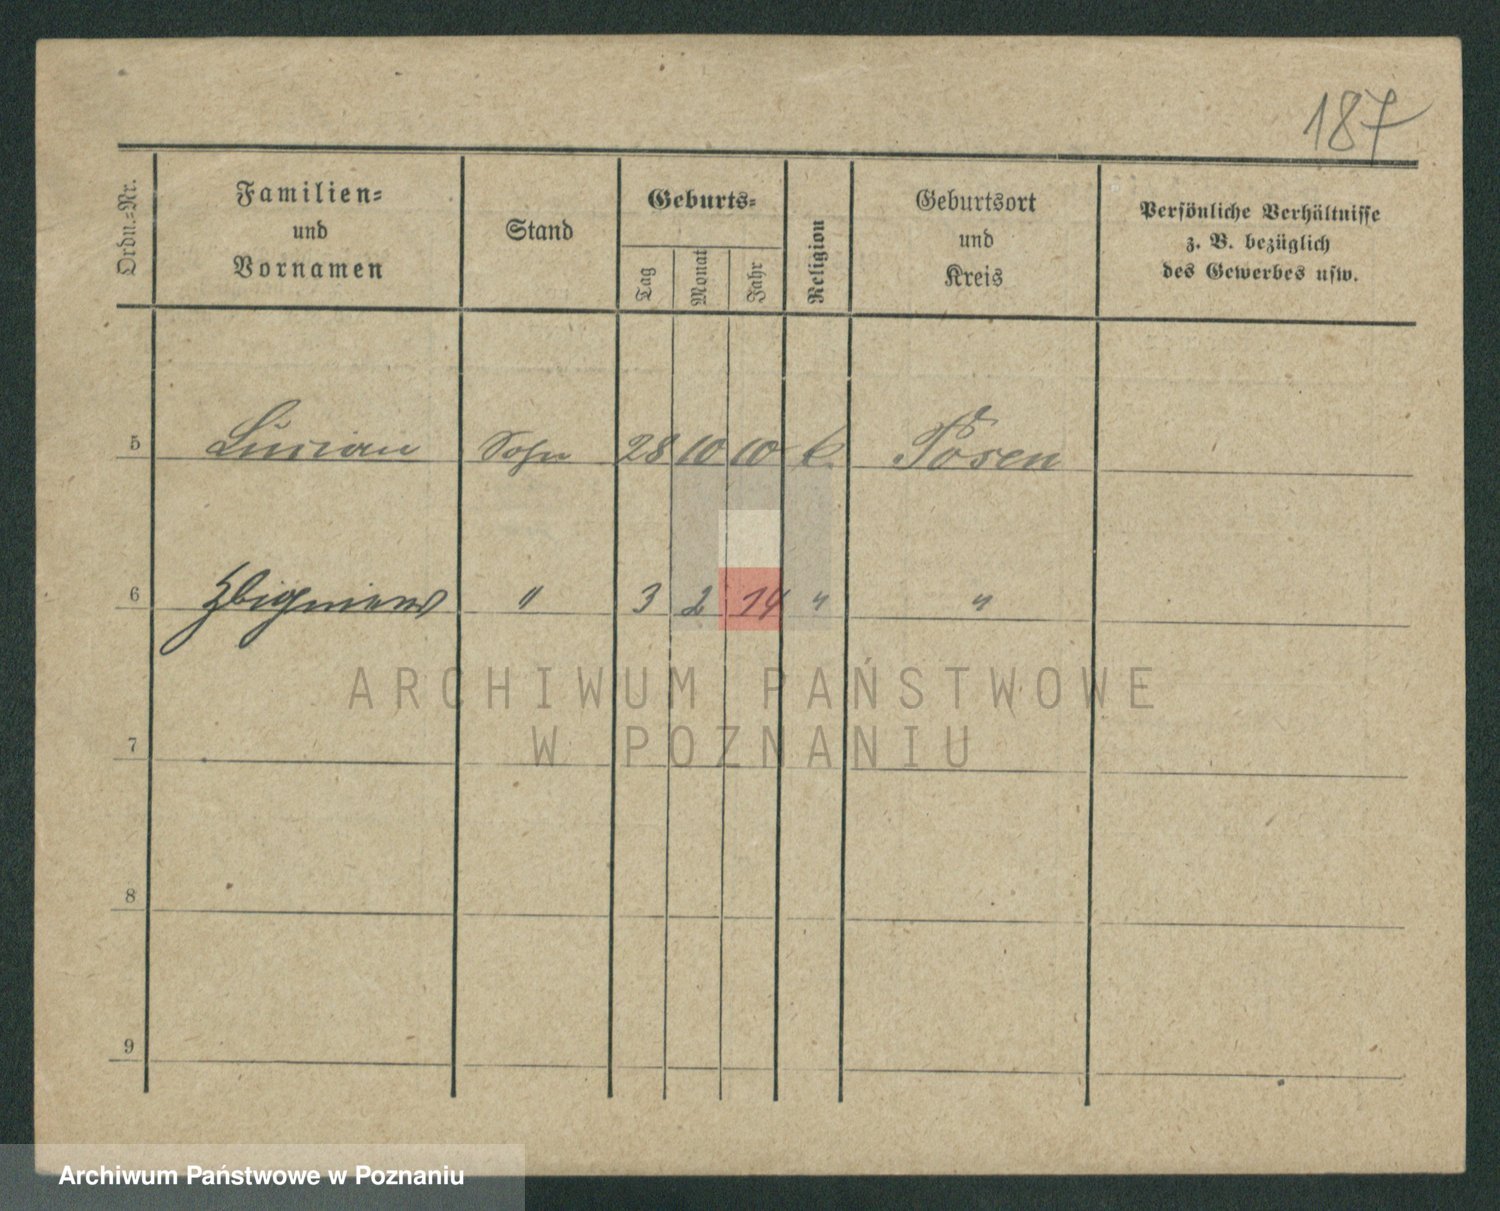 187
Ordn.=Nr.
Familien=
und
Vornamen
Stand
Geburts=
Tag
Monat
Jahr
Religion
Geburtsort
und
Kreis
Persönliche Verhältnisse
z. B. bezüglich
des Gewerbes usw.
5 Lucian Sohn 28 10 10 k. Posen
6 Zbigniew " 3 2 14 " "
ARCHIWUM PAŃSTWOWE
W POZNANIU
7
8
9
Archiwum Państwowe w Poznaniu